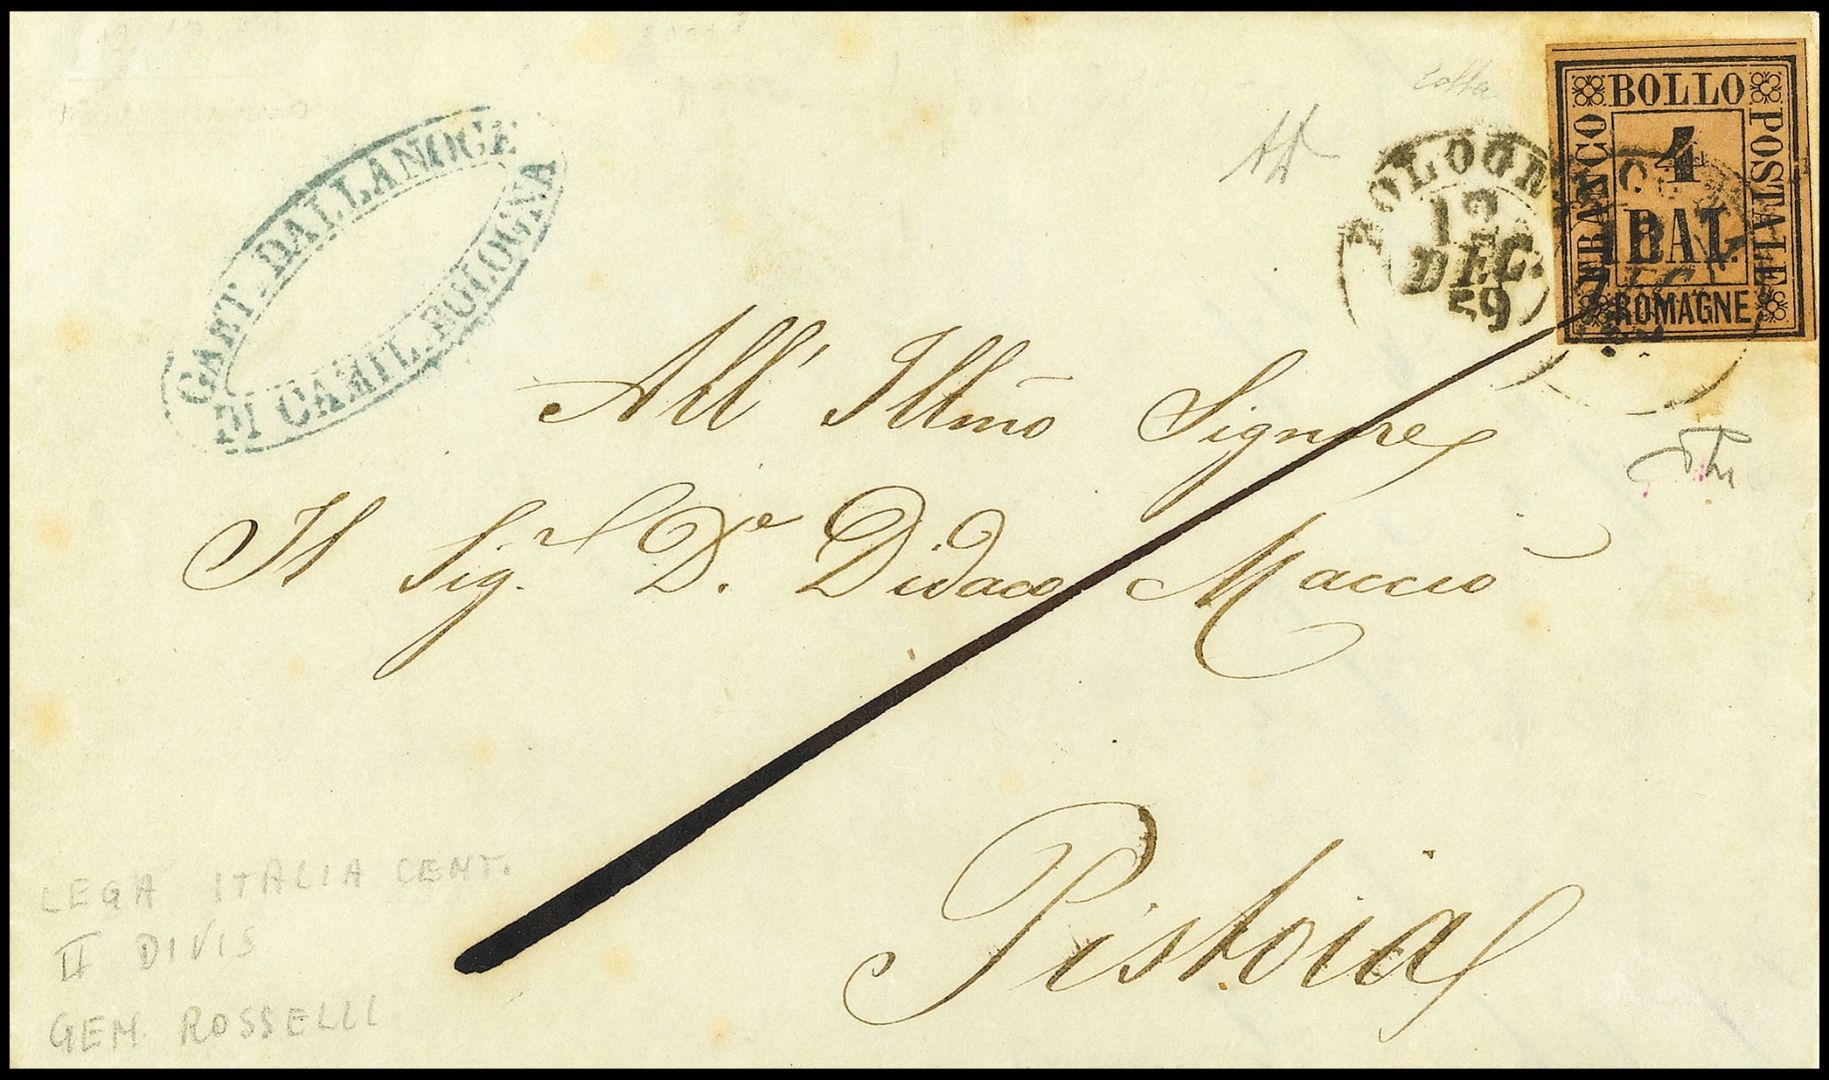 GAET. DALLANOCE
DI CAMIL. BOLOGNA
BOLOGNA
12
DEC.
59
FRANCO
BOLLO
POSTALE
4
BAI.
ROMAGNE
All' Illmo Signore
Il Sig.r D.re Didaco Macciò
Pistoia
LEGA ITALIA CENT.
II DIVIS
GEN. ROSSELLI